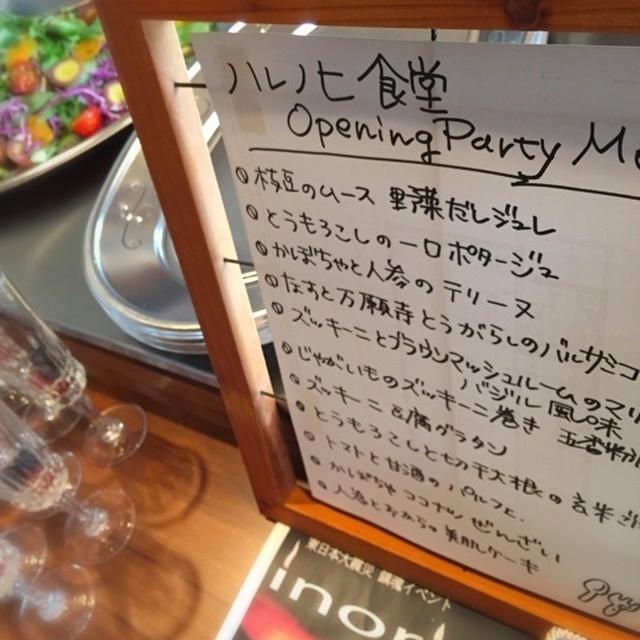 ハレノヒ食堂
Opening Party Me
枝豆のムース 野菜だしジュレ
とうもろこしの一口ポタージュ
かぼちゃと人参のテリーヌ
なすと万願寺とうがらしのバルサミコ
ズッキーニとブラウンマッシュルームのマリ
バジル風味
じゃがいものズッキーニ巻き
ズッキーニ豆腐グラタン
とうもろこしと切干大根の玄米
トマトと甘酒のパルフェ
かぼちゃココナッツぜんざい
人参とおからの 美肌ケーキ
東日本大震災 イベント
inori